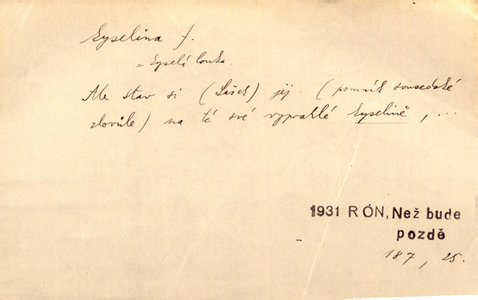 kyselina f.
= kyselá louka.
Ale stav si (Lášek) jej (pomník sousedské
zlovůle) na té své vyprahlé kyselině, ...
1931 RÓN, Než bude
pozdě
187, 25.